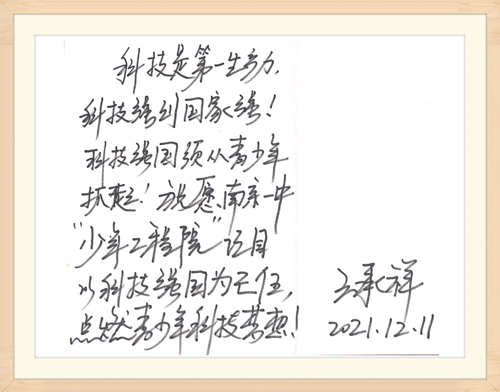 科技是第一生产力，
科技强则国家强！
科技强国须从青少年
抓起！祝愿南京一中
“少年工程院”项目
以科技强国为己任，
点燃青少年科技梦想！
王承祥
2021.12.11